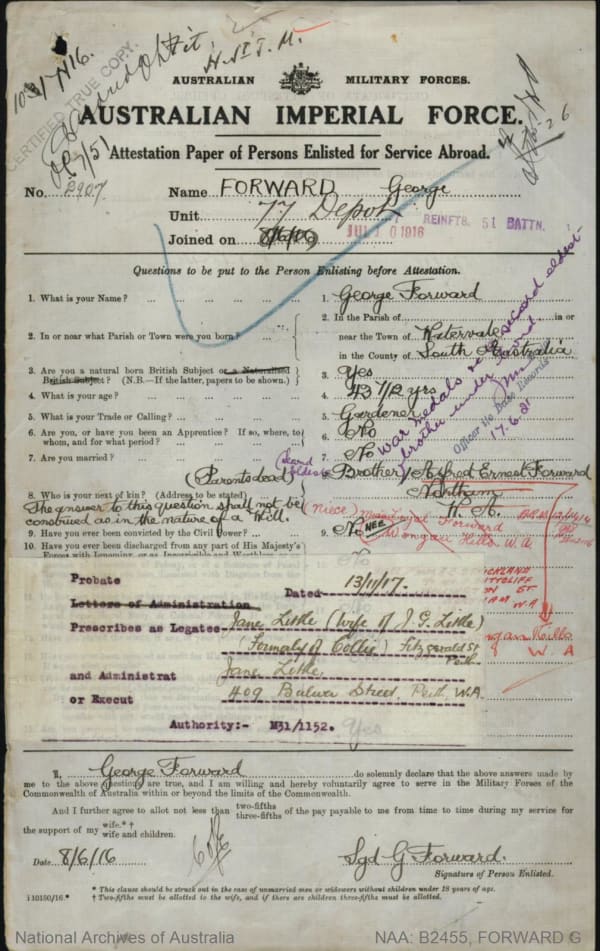 103/7/16.
H. I. T. M.
CERTIFIED TRUE COPY.
AUSTRALIAN MILITARY FORCES.
AUSTRALIAN IMPERIAL FORCE.
Attestation Paper of Persons Enlisted for Service Abroad.
No. 2907. Name FORWARD George
Unit 77 Depot
REINFTS. 51 BATTN.
Joined on 8/6/16
JUL 10 1916
Questions to be put to the Person Enlisting before Attestation.
1. What is your Name? ... 1. George Forward
2. In or near what Parish or Town were you born? ... 2. In the Parish of in or
near the Town of Watervale
in the County of South Australia
3. Are you a natural born British Subject or a Naturalised British Subject? (N.B.—If the latter, papers to be shown.) 3. Yes
4. What is your age? ... 4. 43 1/2 yrs
5. What is your Trade or Calling? ... 5. Gardener
6. Are you, or have you been an Apprentice? If so, where, to whom, and for what period? ... 6. No
7. Are you married? ... 7. No
war medals to second eldest
brother under
Officer i/c Base Records
17.6.21
(Parents dead) (Second eldest) Brother Alfred Ernest Forward
8. Who is your next of kin? (Address to be stated) Northam
W. A.
The answer to this question shall not be
construed as in the nature of a Will.
(niece) NEE Forward
Wongan Hills W. A
9. Have you ever been convicted by the Civil Power? ... 9. No
10. Have you ever been discharged from any part of His Majesty's
Forces with Ignominy, or as Incorrigible and Worthless
Probate
Dated 13/11/17.
Letters of Administration
Prescribes as Legatee- Jane Little (Wife of J. G. Little)
(Formerly of Collie) Fitzgerald St
Perth
and Administrat Jane Little
or Execut 409 Bulwer Street, Perth. W.A.
Authority:- M31/1152.
Yes
ST
W.A
Hills
W. A
I, George Forward do solemnly declare that the above answers made by
me to the above questions are true, and I am willing and hereby voluntarily agree to serve in the Military Forces of the
Commonwealth of Australia within or beyond the limits of the Commonwealth.
And I further agree to allot not less than two-fifths three-fifths of the pay payable to me from time to time during my service for
the support of my wife.*† wife and children.
Date 8/6/16
Sgd G Forward.
Signature of Person Enlisted.
* This clause should be struck out in the case of unmarried men or widowers without children under 18 years of age.
† Two-fifths must be allotted to the wife, and if there are children three-fifths must be allotted.
National Archives of Australia
NAA: B2455, FORWARD G